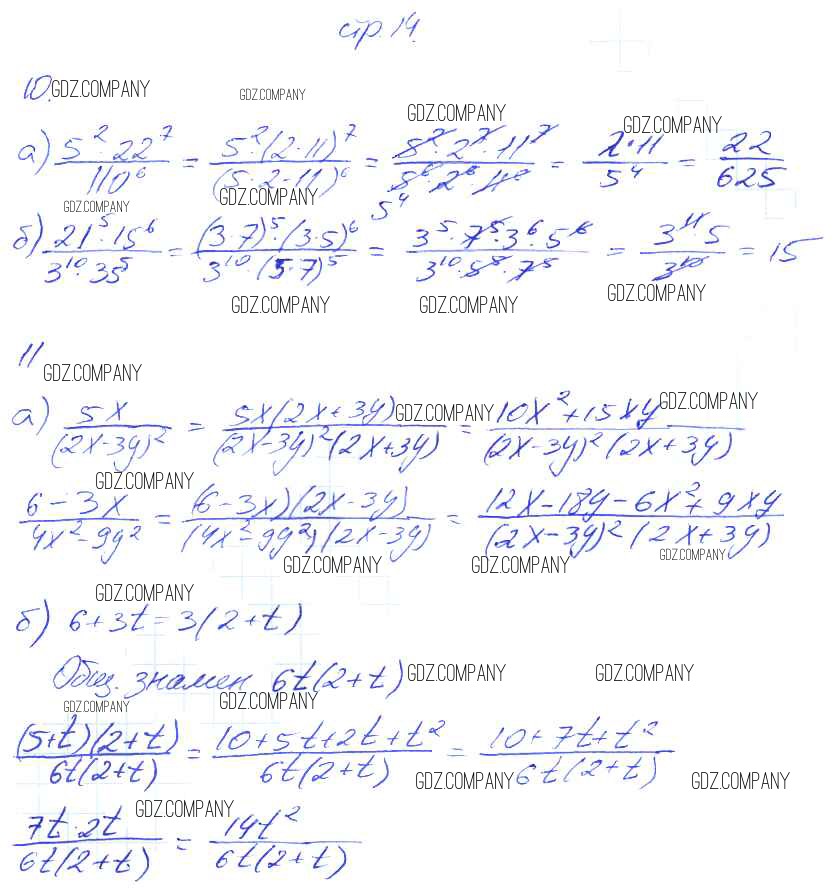 стр. 14.
10. GDZ.COMPANY GDZ.COMPANY GDZ.COMPANY GDZ.COMPANY
а) (5² · 22⁷)/(110⁶) = (5² · (2 · 11)⁷)/((5 · 2 · 11)⁶) = (5² · 2⁷ · 11⁷)/(5⁶ · 2⁶ · 11⁶) 5⁴ = (2 · 11)/(5⁴) = 22/625
GDZ.COMPANY GDZ.COMPANY
б) (21⁵ · 15⁶)/(3¹⁰ · 35⁵) = ((3 · 7)⁵ · (3 · 5)⁶)/(3¹⁰ · (5 · 7)⁵) = (3⁵ · 7⁵ · 3⁶ · 5⁶)/(3¹⁰ · 5⁵ · 7⁵) = (3¹¹ 5)/(3¹⁰) = 15
GDZ.COMPANY GDZ.COMPANY GDZ.COMPANY
11 GDZ.COMPANY
а) (5x)/((2x-3y)²) = (5x(2x+3y))/((2x-3y)²(2x+3y)) = (10x²+15xy)/((2x-3y)²(2x+3y)) GDZ.COMPANY GDZ.COMPANY
GDZ.COMPANY
(6-3x)/(4x²-9y²) = ((6-3x)(2x-3y))/((4x²-9y²)(2x-3y)) = (12x-18y-6x²+9xy)/((2x-3y)²(2x+3y))
GDZ.COMPANY GDZ.COMPANY GDZ.COMPANY
GDZ.COMPANY
б) 6+3t=3(2+t)
Общ. знамен 6t(2+t) GDZ.COMPANY GDZ.COMPANY
GDZ.COMPANY GDZ.COMPANY
((5+t)(2+t))/(6t(2+t)) = (10+5t+2t+t²)/(6t(2+t)) = (10+7t+t²)/(6t(2+t))
GDZ.COMPANY GDZ.COMPANY
GDZ.COMPANY
(7t · 2t)/(6t(2+t)) = (14t²)/(6t(2+t))